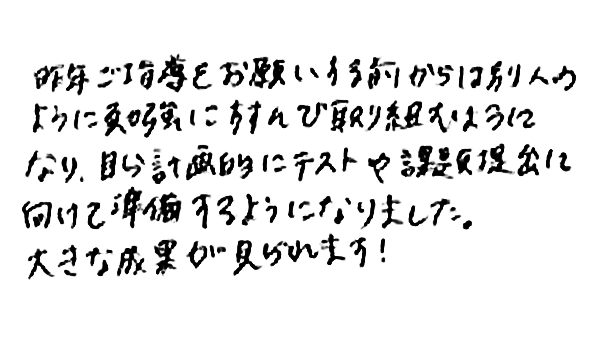 昨年ご指導をお願いする前からは別人の
ように勉強にすすんで取り組むように
なり、自ら計画的にテストや課題提出に
向けて準備するようになりました。
大きな成果が見られます!